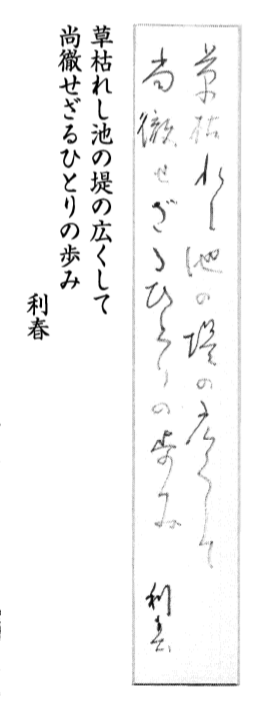 草枯れし池の堤の広くして
尚徹せざるひとりの歩み
利春
草枯れし池の堤の広くして
尚徹せざるひとりの歩み
利春